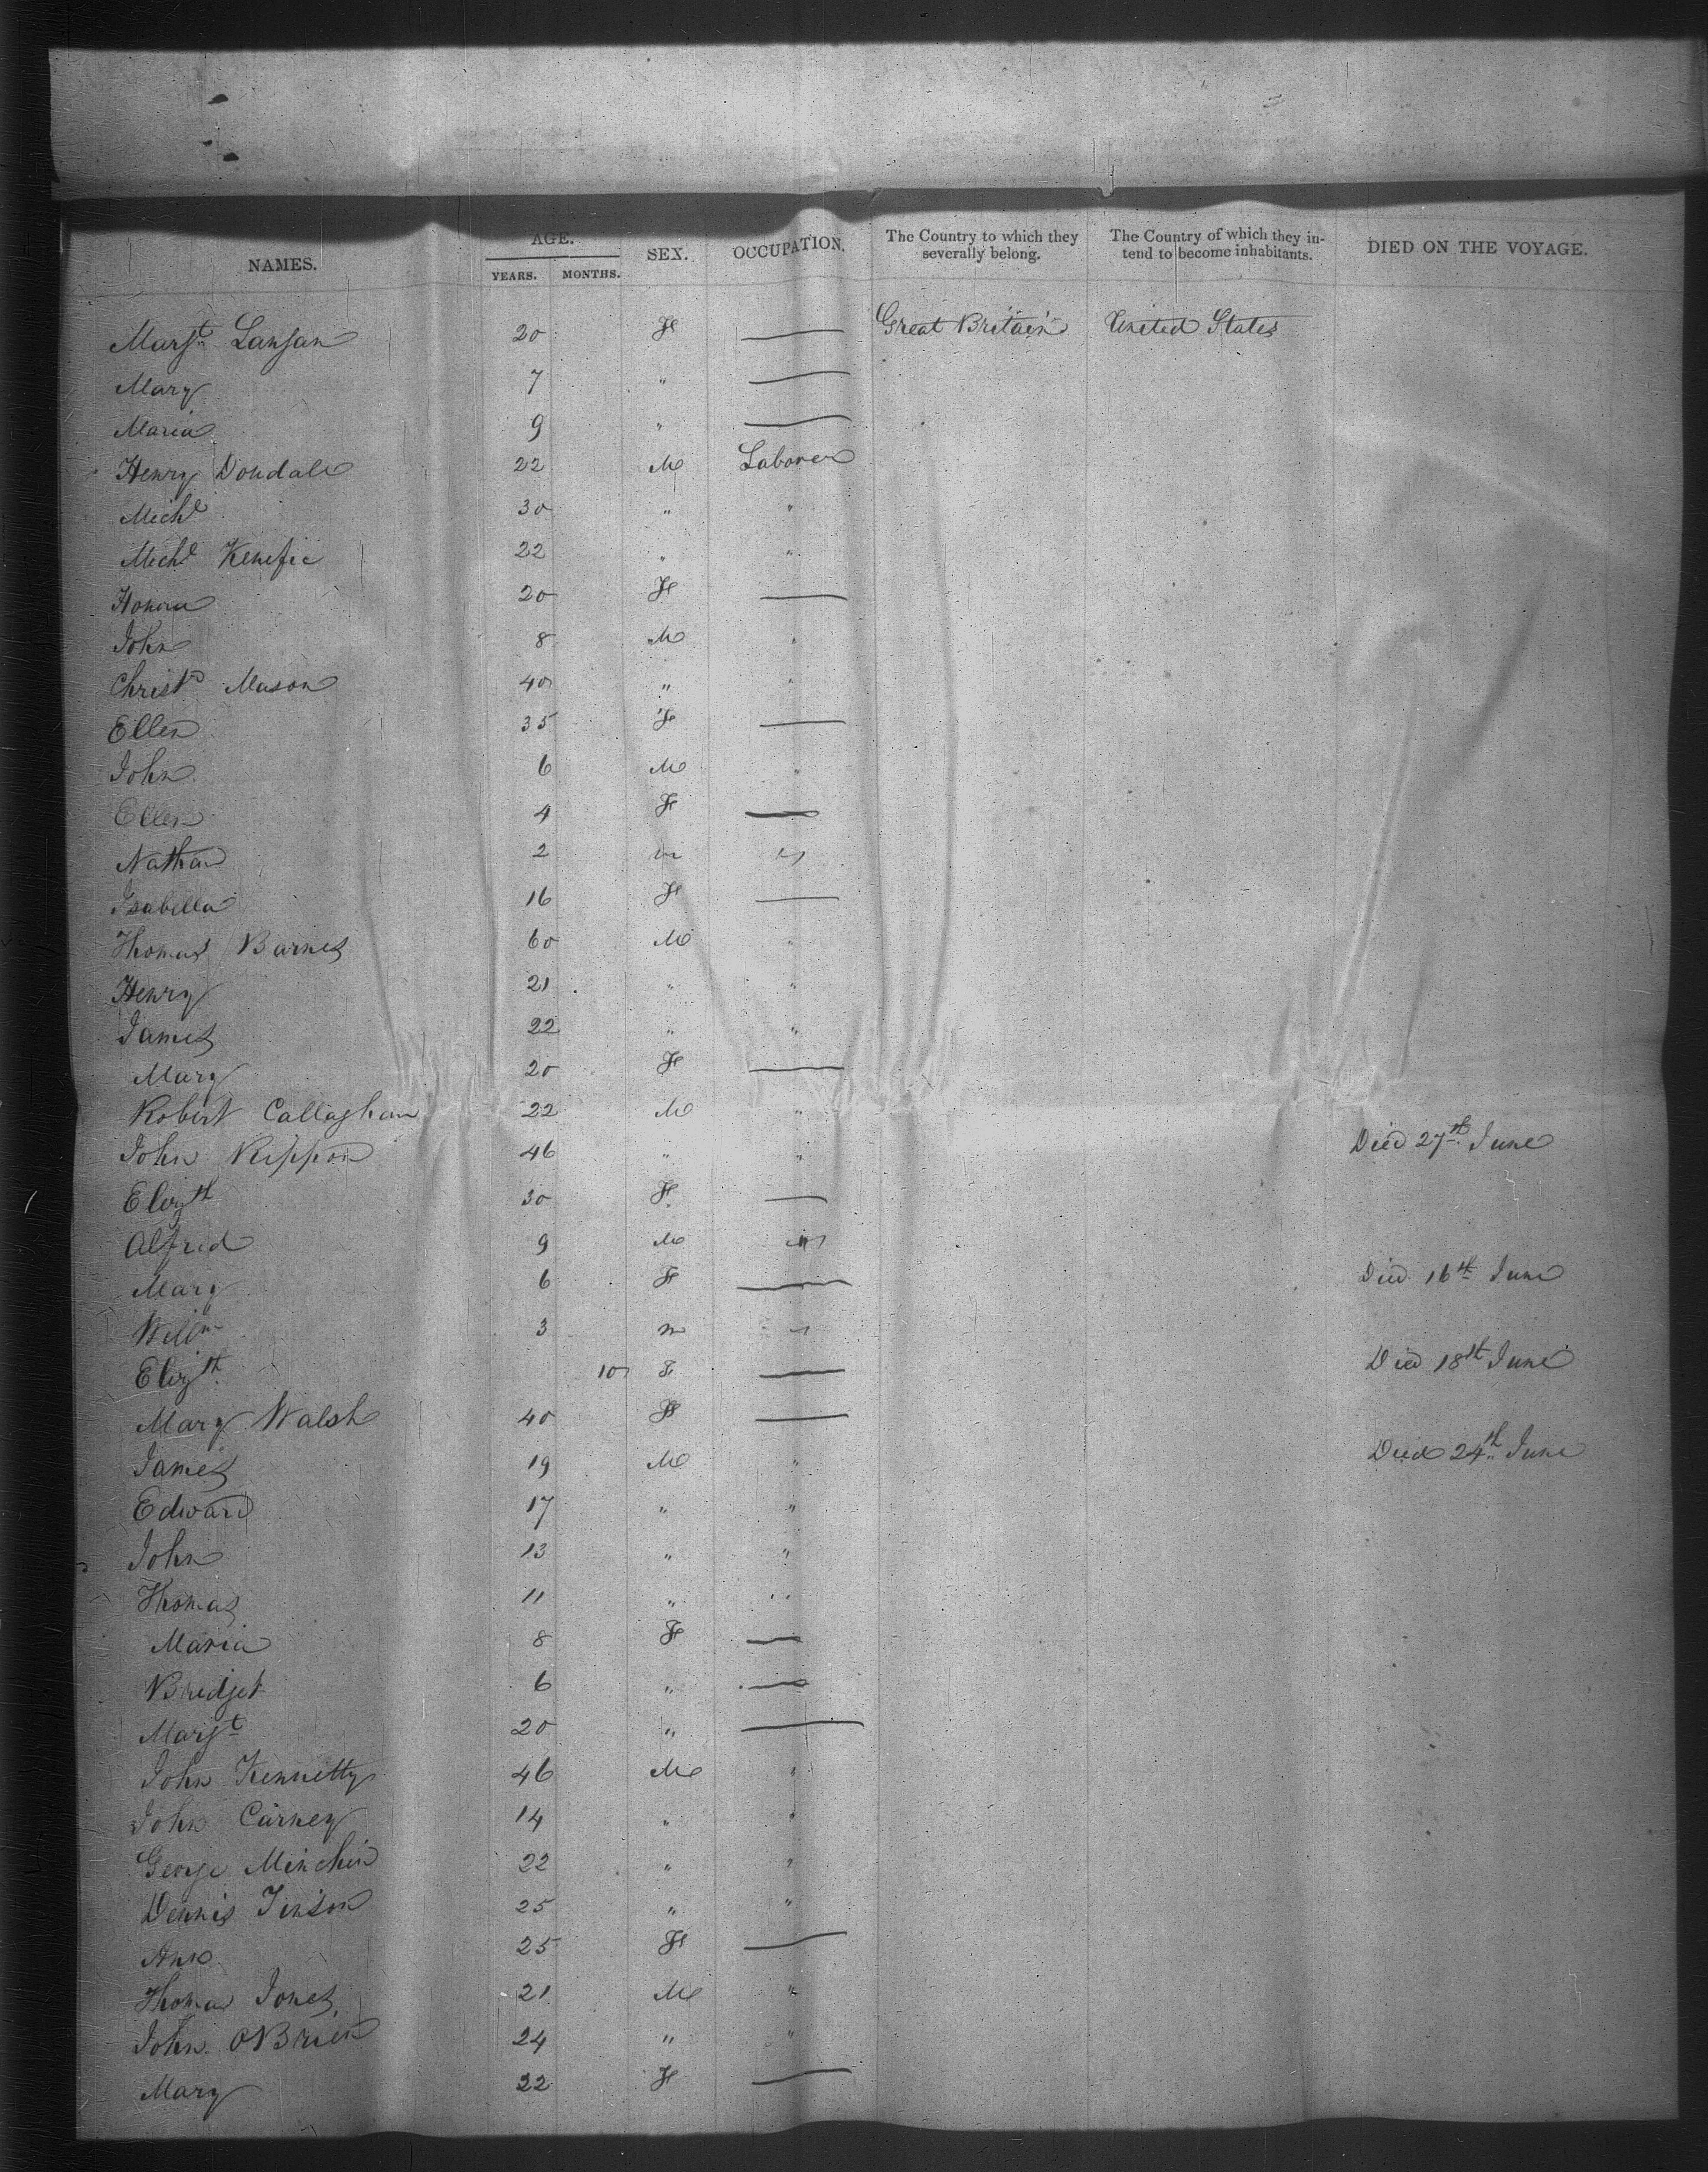 NAMES. AGE. YEARS. MONTHS. SEX. OCCUPATION. The Country to which they severally belong. The Country of which they intend to become inhabitants. DIED ON THE VOYAGE.
Margt Langan 20 F — Great Britain United States
Mary 7 " —
Maria 9 " —
Henry Doudale 22 M Laborer
Michl 30 " "
Michl Kenefic 22 " "
Honora 20 F —
John 8 M "
Christr Mason 40 " "
Ellen 35 F —
John 6 M "
Ellen 4 F —
Nathan 2 m "
Isabella 16 F —
Thomas Barnes 60 M "
Henry 21 " "
James 22 " "
Mary 20 F —
Robert Callaghan 22 M "
John Rippon 46 " " Died 27th June
Elizth 30 F —
Alfred 9 M "
Mary 6 F — Died 16th June
Willm 3 m "
Elizth 10 F — Died 18th June
Mary Walsh 40 F —
James 19 M " Died 24th June
Edward 17 " "
John 13 " "
Thomas 11 " "
Maria 8 F —
Bridget 6 " —
Margt 20 " —
John Kennetty 46 M "
John Carney 14 " "
George Minchin 22 " "
Dennis Tinson 25 " "
Ann 25 F —
Thomas Jones 21 M "
John OBrien 24 " "
Mary 22 F —